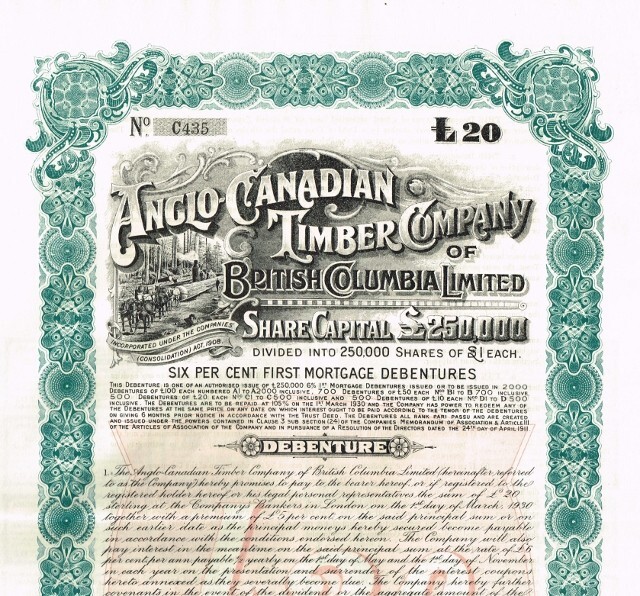 No. C435
£20
ANGLO-CANADIAN
TIMBER COMPANY
OF
BRITISH COLUMBIA LIMITED
INCORPORATED UNDER THE COMPANIES
(CONSOLIDATION) ACT, 1908.
SHARE CAPITAL £250,000
DIVIDED INTO 250,000 SHARES OF £1 EACH.
SIX PER CENT FIRST MORTGAGE DEBENTURES
THIS DEBENTURE IS ONE OF AN AUTHORISED ISSUE OF £250,000 6% 1ST MORTGAGE DEBENTURES ISSUED OR TO BE ISSUED IN 2000
DEBENTURES OF £100 EACH NUMBERED A1 TO A2000 INCLUSIVE, 700 DEBENTURES OF £50 EACH Nos B1 TO B700 INCLUSIVE
500 DEBENTURES OF £20 EACH Nos C1 TO C500 INCLUSIVE AND 500 DEBENTURES OF £10 EACH Nos D1 TO D500
INCLUSIVE. THE DEBENTURES ARE TO BE REPAID AT 105% ON THE 1ST MARCH 1930 AND THE COMPANY HAS POWER TO REDEEM ANY OF
THE DEBENTURES AT THE SAME PRICE, OR ANY DATE ON WHICH INTEREST OUGHT TO BE PAID ACCORDING TO THE TENOR OF THE DEBENTURES
ON GIVING 6 MONTHS PRIOR NOTICE IN ACCORDANCE WITH THE TRUST DEED. THE DEBENTURES ALL RANK PARI PASSU AND ARE CREATED
AND ISSUED UNDER THE POWERS CONTAINED IN CLAUSE 3 SUB SECTION (24) OF THE COMPANIES MEMORANDUM OF ASSOCIATION & ARTICLE 111
OF THE ARTICLES OF ASSOCIATION OF THE COMPANY AND IN PURSUANCE OF A RESOLUTION OF THE DIRECTORS DATED THE 24TH DAY OF APRIL 1911
DEBENTURE
1. The Anglo-Canadian Timber Company of British Columbia Limited (hereinafter referred
to as the Company) hereby promises to pay to the bearer hereof or if registered to the
registered holder hereof or his legal personal representatives the sum of £20
sterling at the Company's Bankers in London on the 1st day of March, 1930
together with a premium of £5 per cent on the said principal sum or on
such earlier date as the principal moneys hereby secured become payable
in accordance with the conditions endorsed hereon. The Company will also
pay interest in the meantime on the said principal sum at the rate of £6
per cent per ann. payable ½ yearly on the 1st day of May and the 1st day of November
in each year on the presentation and surrender of the interest coupons
hereto annexed as they severally become due. The Company hereby further
covenants in the event of the dividend or the aggregate amount of the